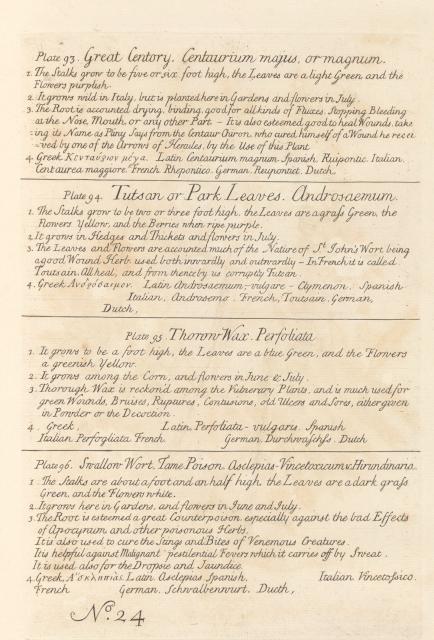 Plate 93. Great Centory. Centaurium majus, or magnum.
1. The Stalks grow to be five or six foot high, the Leaves are a light Green and the
Flowers purplish.
2. It grows wild in Italy, but is planted here in Gardens and flowers in July.
3. The Root is accounted drying, binding, good for all kinds of Fluxes, Stopping Bleeding
at the Nose, Mouth, or any other Part – It is also esteemed good to heal Wounds, tak=
=ing its Name as Pliny Says from the Centaur Chiron, who cured himself of a Wound he recei
=ved by one of the Arrows of Hercules, by the Use of this Plant
4. Greek, Κενταύριον μέγα. Latin, Centaurium magnum. Spanish, Ruipontic. Italian,
Centaurea maggiore. French, Rhepontico. German, Reupontict. Dutch,
Plate 94. Tutsan or Park Leaves. Androsaemum.
1. The Stalks grow to be two or three foot high, the Leaves are a grass Green, the
Flowers Yellow, and the Berries when ripe purple.
2. It grows in Hedges and Thickets and flowers in July.
3. The Leaves and Flowers are accounted much of the Nature of St. John's Wort being
a good Wound Herb used both inwardly and outwardly – In French it is called
Toutsain, All heal, and from thence by us corruptly Tutsan.
4. Greek, Ανδρόσαιμον. Latin, Androsaemum, – vulgare – Clymenon. Spanish
Italian, Androsemo. French, Toutsain. German,
Dutch,
Plate 95. Thorow Wax. Perfoliata
1. It grows to be a foot high, the Leaves are a blue Green, and the Flowers
a greenish Yellow.
2. It grows among the Corn, and flowers in June & July.
3. Thorough Wax is reckond among the Vulnerary Plants, and is much used for
green Wounds, Bruises, Ruptures, Contusions, old Ulcers and Sores, either given
in Powder or the Decoction.
4. Greek, Latin, Perfoliata – vulgaris. Spanish
Italian Perfogliata. French German, Durchwachss. Dutch
Plate 96. Swallow Wort. Tame Poison. Asclepias – Vincetoxicum v. Hirundinaria.
1. The Stalks are about a foot and an half high, the Leaves are a dark grass
Green, and the Flowers white.
2. It grows here in Gardens, and flowers in June and July.
3. The Root is esteemed a great Counterpoison, especially against the bad Effects
of Apocynum and other poisonous Herbs.
It is also used to cure the Stings and Bites of Venemous Creatures.
It is helpful against Malignant pestilential Fevers which it carries off by Sweat.
It is used also for the Dropsie and Jaundice.
4. Greek, Α'σκληπιάς. Latin, Asclepias. Spanish, Italian Vincetossico.
French German, Schwalbenwurt. Ducth,
No. 24